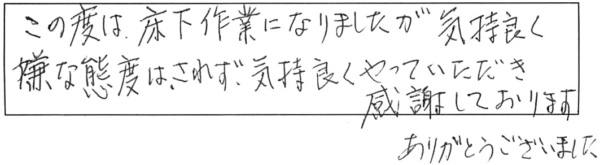 この度は、床下作業になりましたが気持良く
嫌な態度はされず、気持良くやっていただき
感謝しております
ありがとうございました